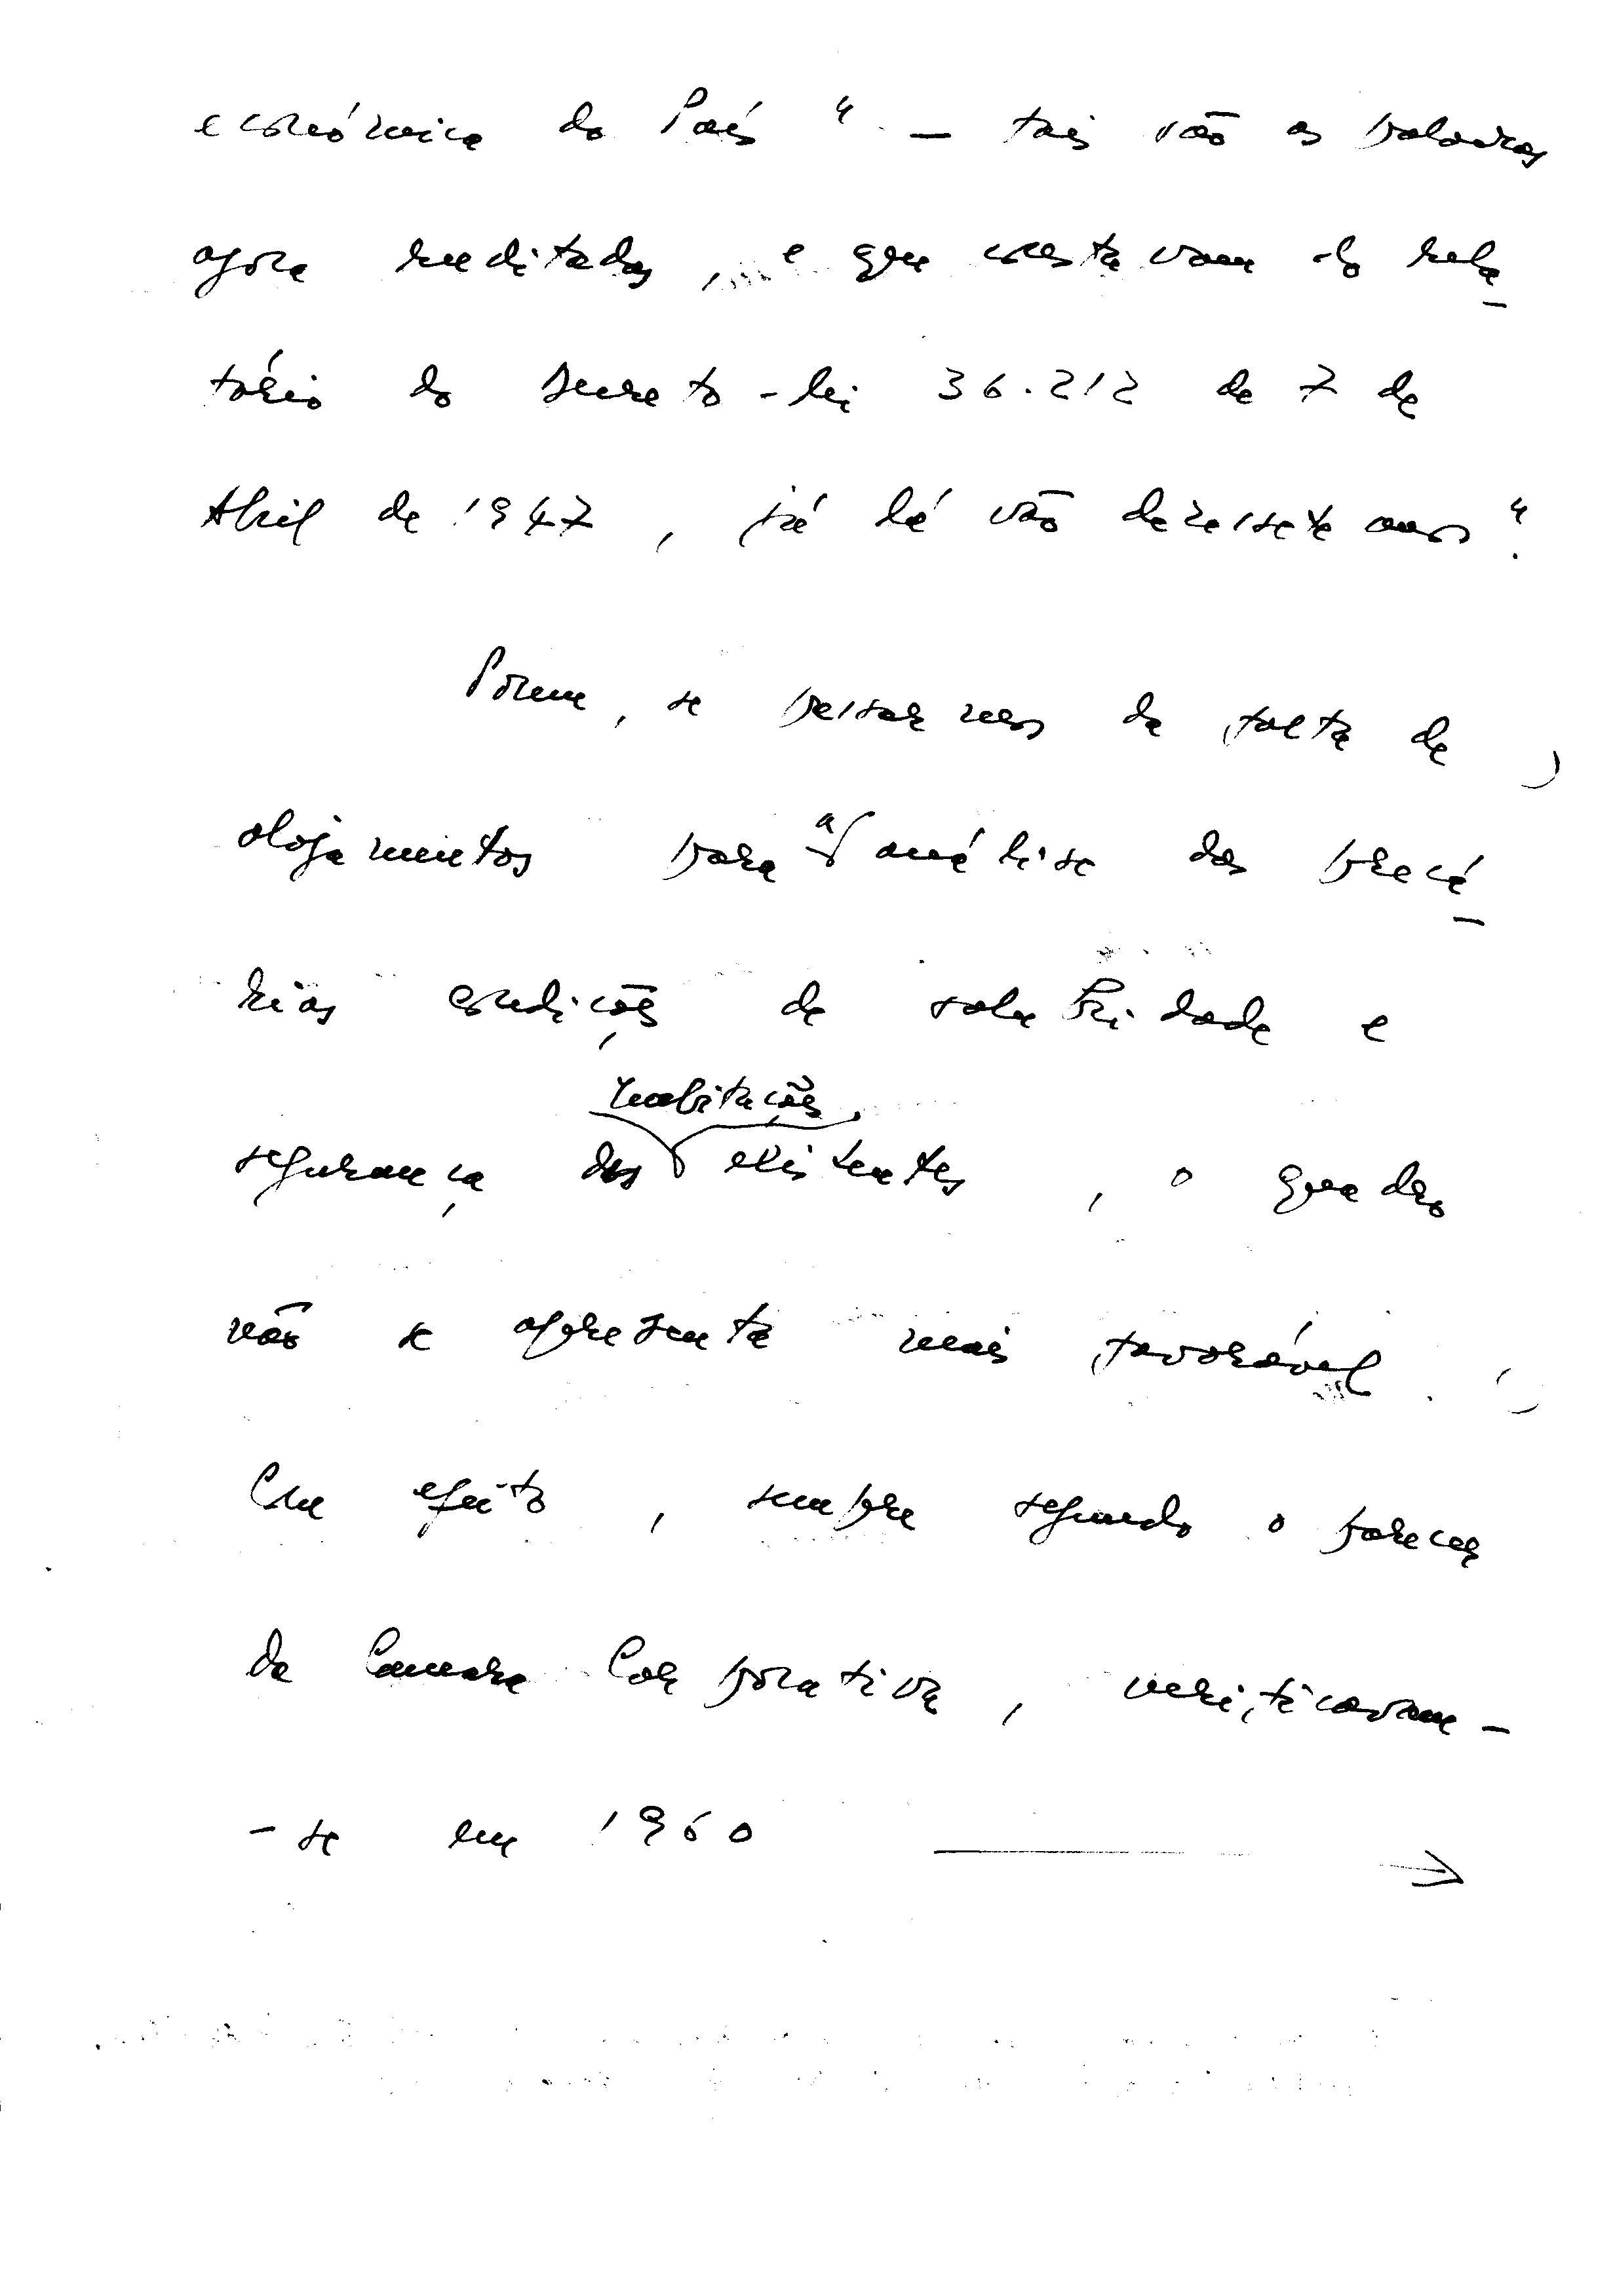 económica do País" — tais são as palavras
agora reeditadas, e que constavam do rela-
tório do Decreto-lei 36.212 de 7 de
Abril de 1947, já lá vão dezassete anos".
Porem, se passarmos da falta de
alojamentos para a análise das precá-
rias condições de salubridade e
segurança das habitações existentes, o quadro
não se apresenta mais favorável.
Com efeito, sempre segundo o parecer
da Camara Corporativa, verificavam-
-se em 1960 →